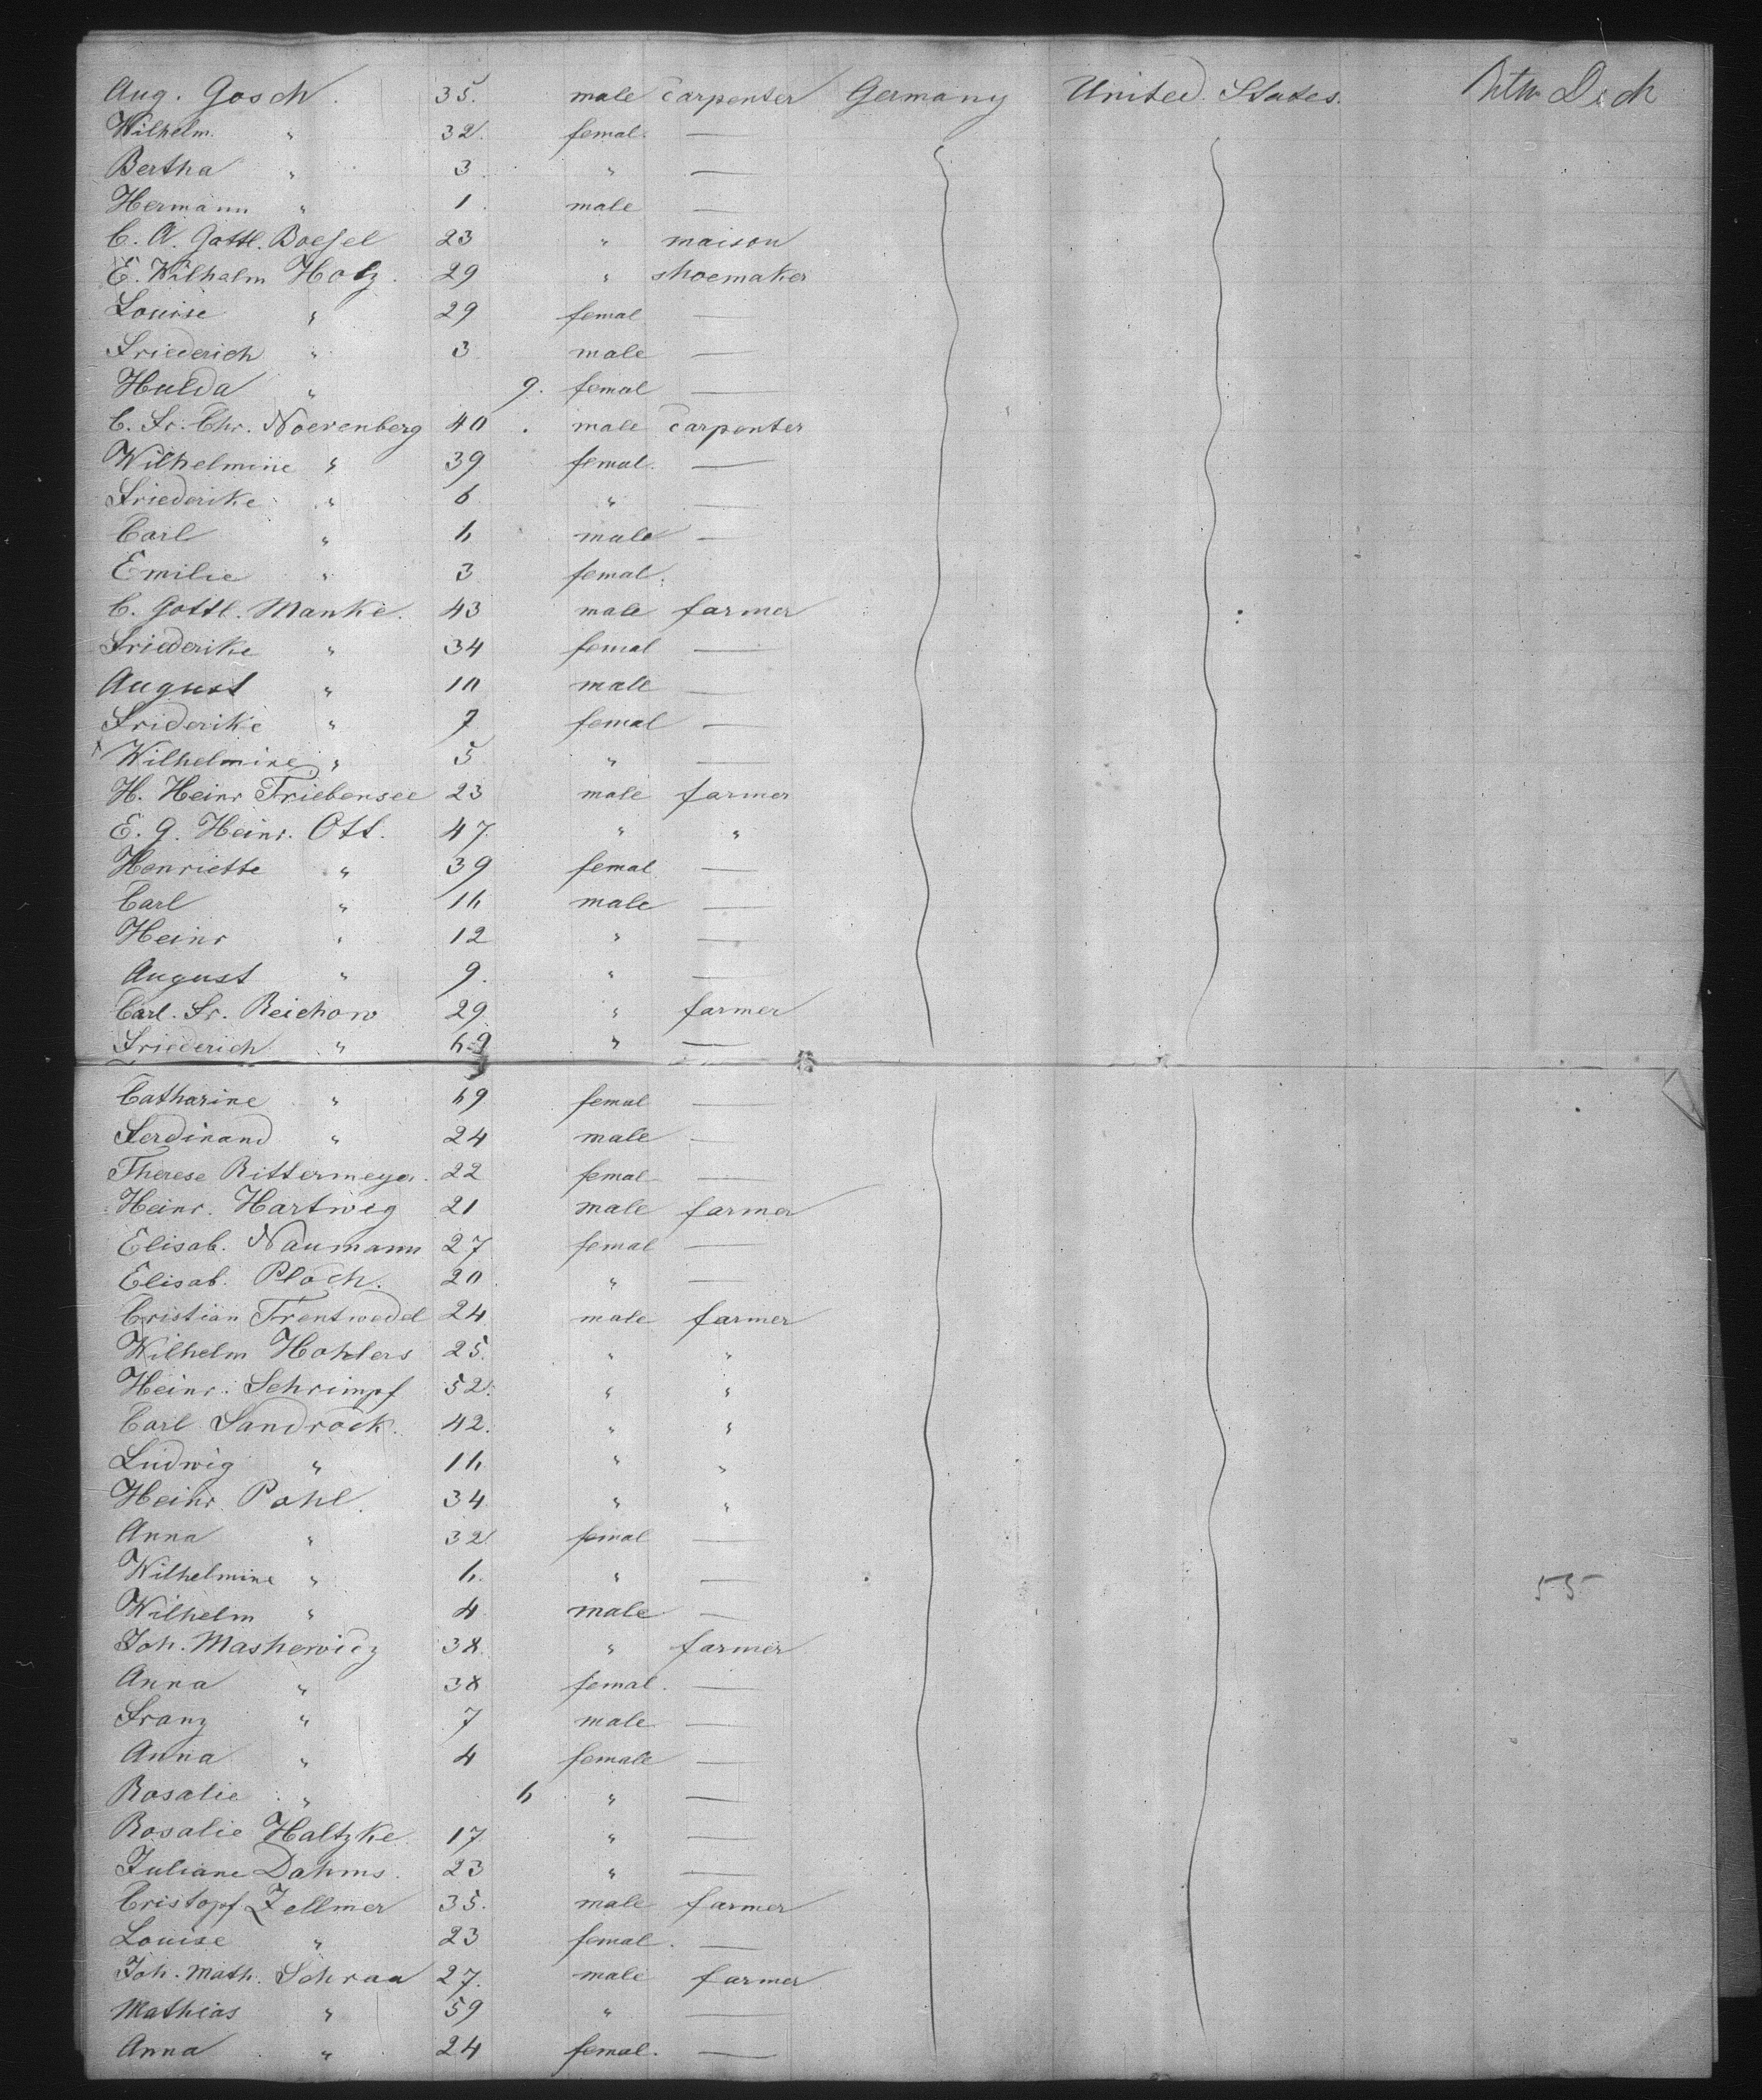 Aug. Gosch. 35. male Carpenter Germany United States. Betw Deck
Wilhelm. " 32. femal. —
Bertha " 3. " —
Hermann " 1. male —
C. A. Gottl. Boesel 23 " maison
E. Wilhelm Holz. 29 " shoemaker
Louise " 29 femal —
Friederich " 3 male —
Hulda " 9. femal —
C. Fr. Chr. Noerenberg 40 male Carpenter
Wilhelmine " 39 femal. —
Friederike " 6 " —
Carl " 6 male —
Emilie " 3 femal.
C. Gottl. Manke. 43 male farmer
Friederike " 34 femal —
August " 10 male —
Friderike " 7 femal —
Wilhelmine " 5 " —
H. Heinr Triebensee 23 male farmer
E. G. Heinr. Ott. 47. " "
Henriette " 39 femal —
Carl " 16 male —
Heinr " 12 " —
August " 9. " —
Carl. Fr. Reichow 29 " farmer
Friederich " 69 " —
Catharine " 69 femal —
Ferdinand " 24 male —
Therese Rittermeyer. 22 femal —
Heinr. Hartwig 21 male farmer
Elisab. Naumann 27 femal —
Elisab. Ploch. 20. " —
Cristian Trentwedel 24 male farmer
Wilhelm Hohlers 25. " "
Heinr. Schrimpf 52. " "
Carl Sandrock. 42. " "
Ludwig " 16 " "
Heinr. Pohl. 34 " "
Anna " 32 femal —
Wilhelmine " 6. " —
Wilhelm " 4 male — 55
Joh. Mashewicz 38. " farmer
Anna " 38 femal. —
Franz " 7 male —
Anna " 4 female —
Rosalie " 6 " —
Rosalie Haltzke 17 " —
Juliane Dahms. 23 " —
Cristopf Zellmer 35. male farmer
Louise " 23 femal. —
Joh. Math. Schraa 27. male farmer
Mathias " 59 " —
Anna " 24 femal. —